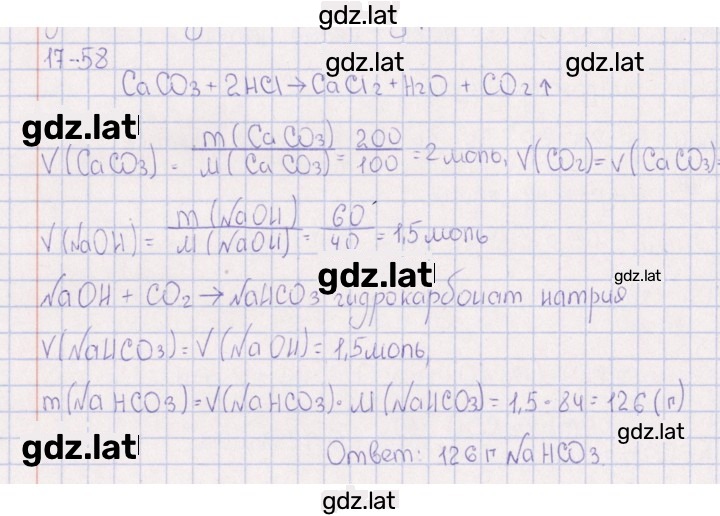 gdz.lat
17-58
gdz.lat gdz.lat
CaCO3 + 2HCl → CaCl2 + H2O + CO2 ↑
gdz.lat
V(CaCO3) = m(CaCO3) / M(CaCO3) = 200 / 100 = 2 моль, V(CO2) = V(CaCO3) =
V(NaOH) = m(NaOH) / M(NaOH) = 60 / 40 = 1,5 моль
gdz.lat gdz.lat
NaOH + CO2 → NaHCO3 гидрокарбонат натрия
V(NaHCO3) = V(NaOH) = 1,5 моль,
m(NaHCO3) = V(NaHCO3) · M(NaHCO3) = 1,5 · 84 = 126 (г)
gdz.lat
gdz.lat
Ответ: 126 г NaHCO3.
gdz.lat